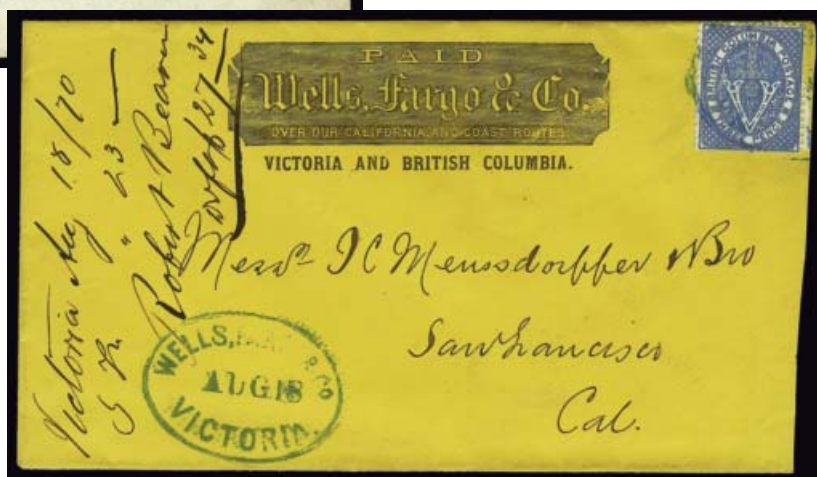 PAID
Wells, Fargo & Co.
OVER OUR CALIFORNIA AND COAST ROUTES.
VICTORIA AND BRITISH COLUMBIA.
BRITISH COLUMBIA POSTAGE
THREE PENCE
V
Victoria Aug 18/70
" 23
Robert Beaven
27 34
Messrs J C Meussdorffer & Bro
San Francisco
Cal.
WELLS, FARGO & CO
AUG 18
VICTORIA.